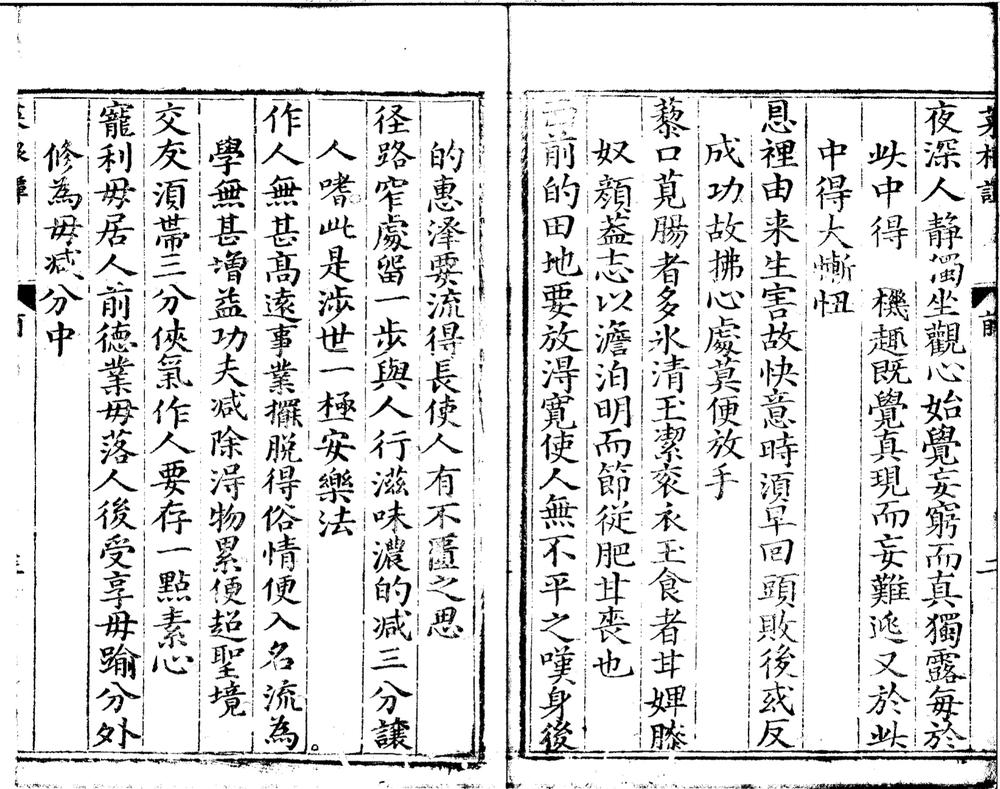 夜深人静獨坐觀心始覺妄窮而真獨露每於
此中得 機趣既覺真現而妄難逃又於此
中得大慚忸
恩裡由来生害故快意時湏早回頭敗後或反
成功故拂心處莫便放手
藜口莧腸者多氷清玉潔衮衣玉食者甘婢膝
奴顔葢志以澹泊明而節從肥甘喪也
面前的田地要放淂寛使人無不平之嘆身後
的惠泽要流得長使人有不匱之思
径路窄處留一步與人行滋味濃的减三分讓
人嗜此是涉世一極安樂法
作人無甚髙遠事業擺脱得俗情便入名流為
學無甚増益功夫减除淂物累便超聖境
交友湏帯三分侠氣作人要存一點素心
寵利毋居人前德業毋落人後受享毋踰分外
修為毋减分中